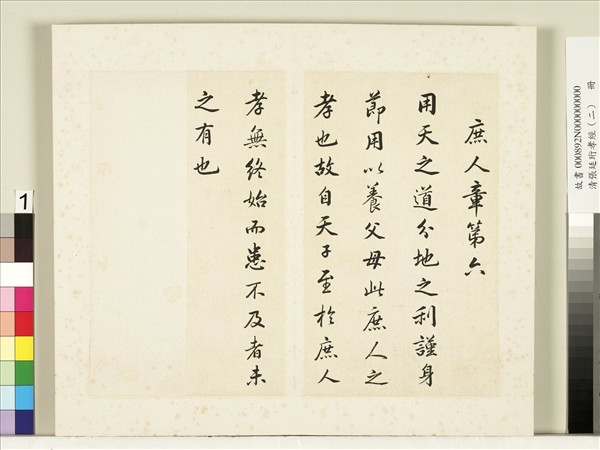 庶人章第六
用天之道分地之利謹身
節用以養父母此庶人之
孝也故自天子至於庶人
孝無終始而患不及者未
之有也
1
故書000892N000000000
清張廷玿孝經（二） 冊